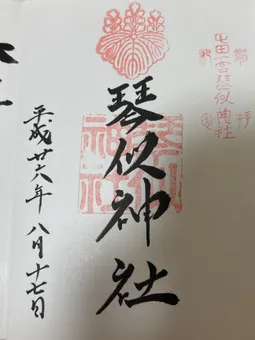 屯田一宮琴似神社
琴似神社
琴似
神社
平成廿六年八月十七日